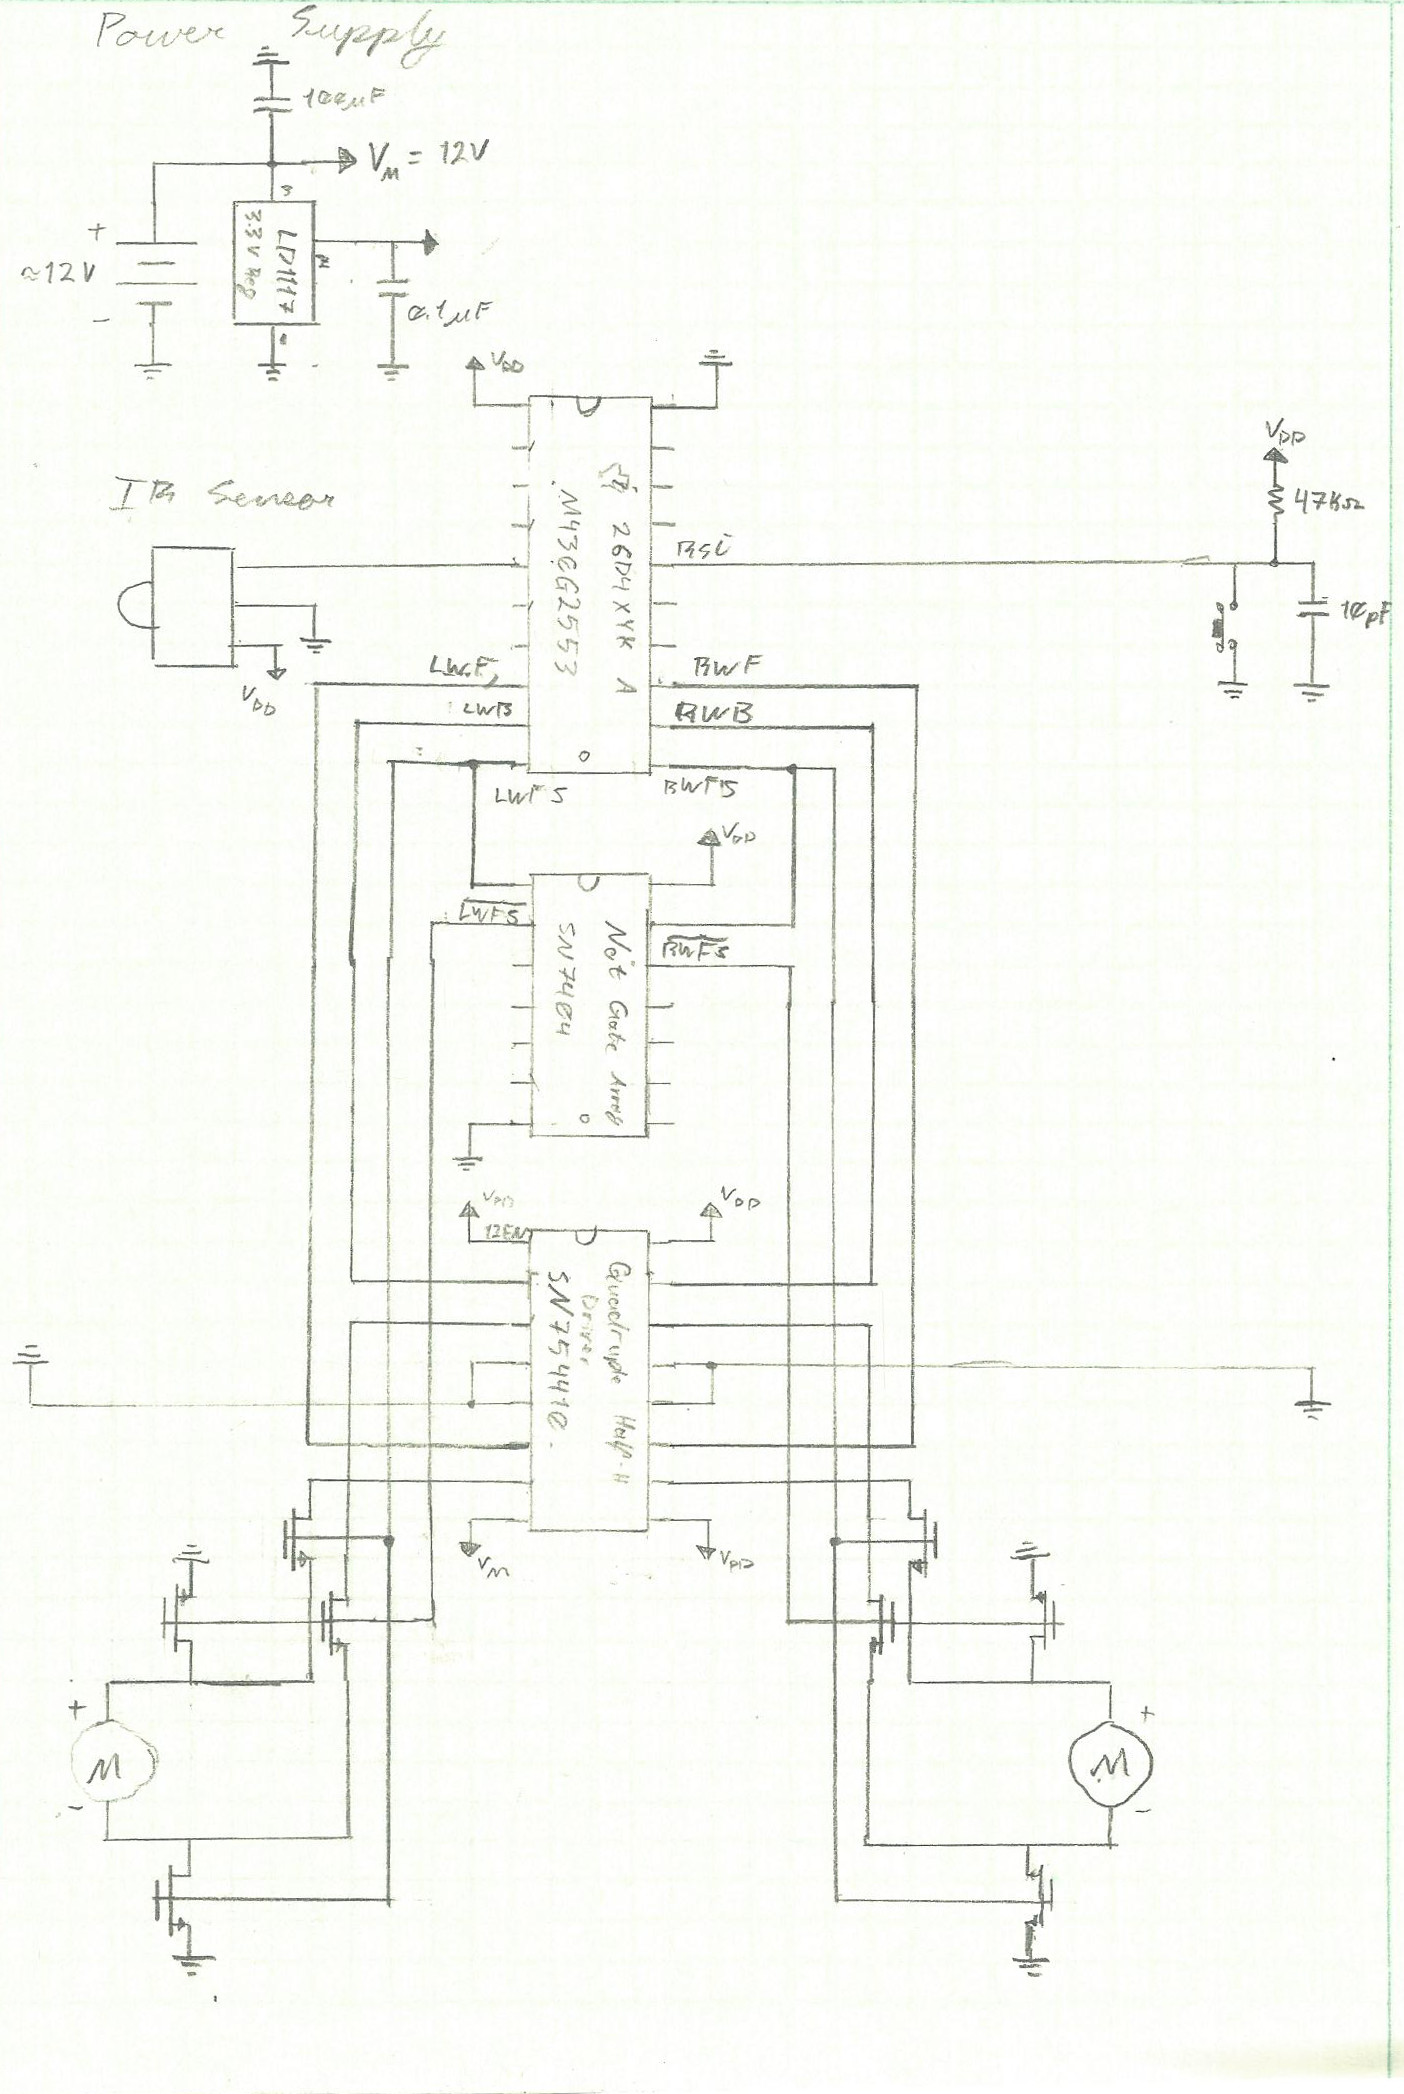 Power Supply
100µF
V_M = 12V
3
+
≈12V
-
LD1117
3.3V Reg
0.1µF
V_DD
IR Sensor
V_DD
M430G2553
26D4XYK A
RST
V_DD
47kΩ
10pF
LWF
LWB
LWFS
RWF
RWB
RWFS
V_DD
L̅W̅F̅S̅
R̅W̅F̅S̅
Not Gate Array
SN7404
V_DD
12EN
V_DD
Quadruple Half-H
Driver
SN754410
V_M
V_DD
+
M
-
+
M
-